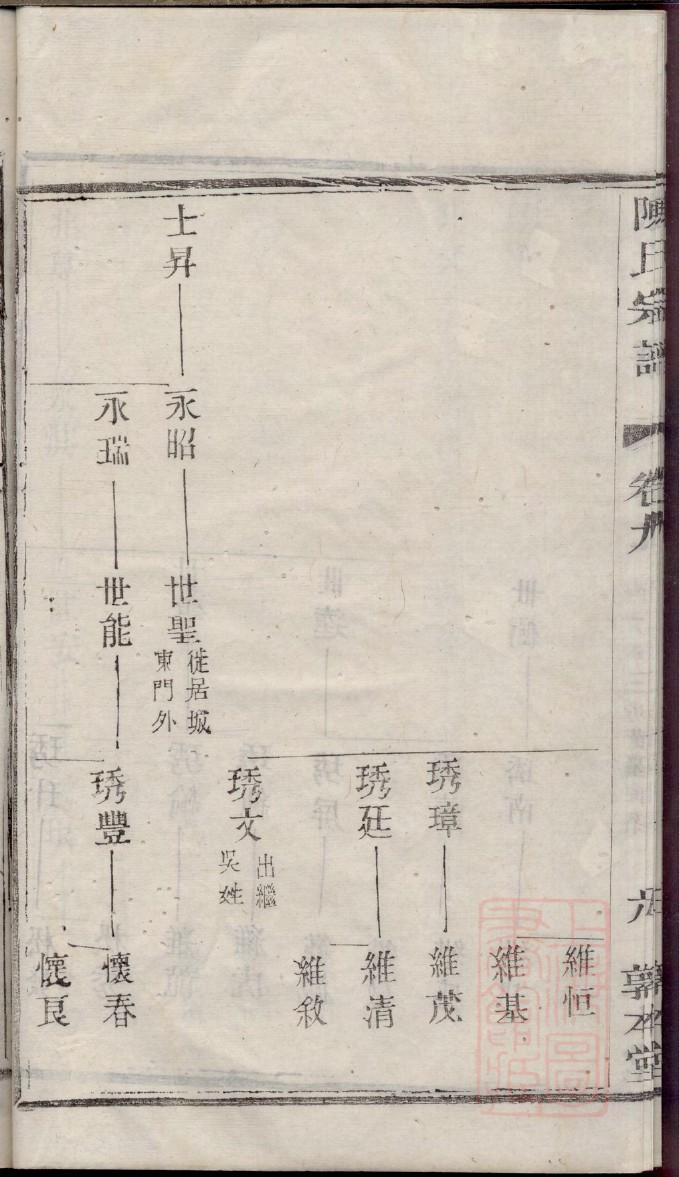 陳氏宗譜
卷九
敦本堂
維恒
維基
琇璋
維茂
琇廷
維清
維敘
琇文
出繼
吳姓
士昇
永昭
世聖
徙居城
東門外
永瑞
世能
琇豐
懷春
懷良